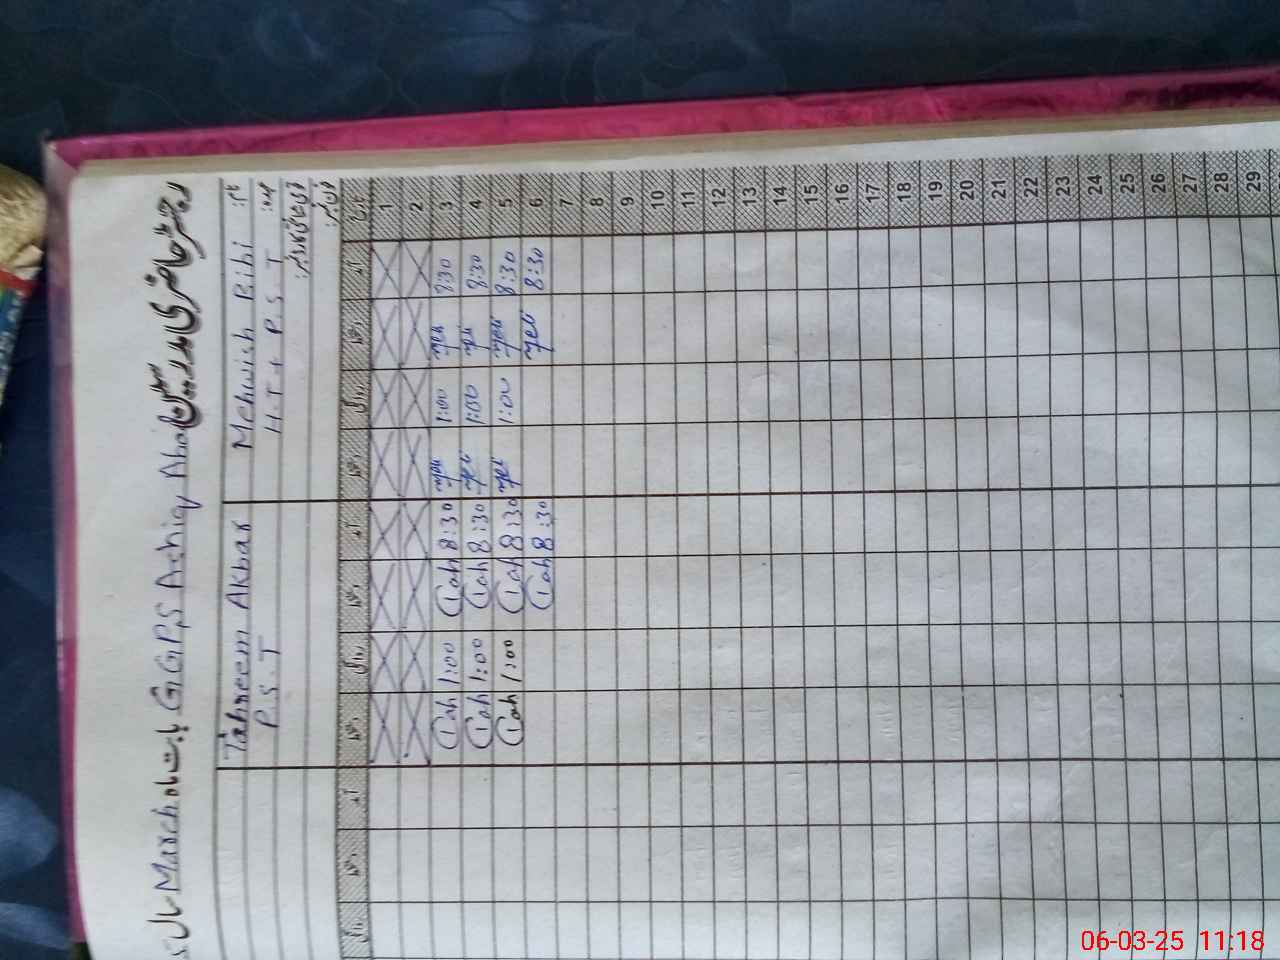 رجسٹر حاضری مدرسین G.G.P.S Achiq Abad بابت ماہ March سال
نام: Mehwish Bibi Tahreem Akbar
عہدہ: H.T + P.S.T P.S.T
تاریخ آمد دستخط روانگی دستخط آمد دستخط روانگی دستخط آمد دستخط روانگی
1
2
3 8:30 1:00 8:30 1:00
4 8:30 1:00 8:30 1:00
5 8:30 1:00 8:30 1:00
6 8:30 8:30
7
8
9
10
11
12
13
14
15
16
17
18
19
20
21
22
23
24
25
26
27
28
29
06-03-25 11:18